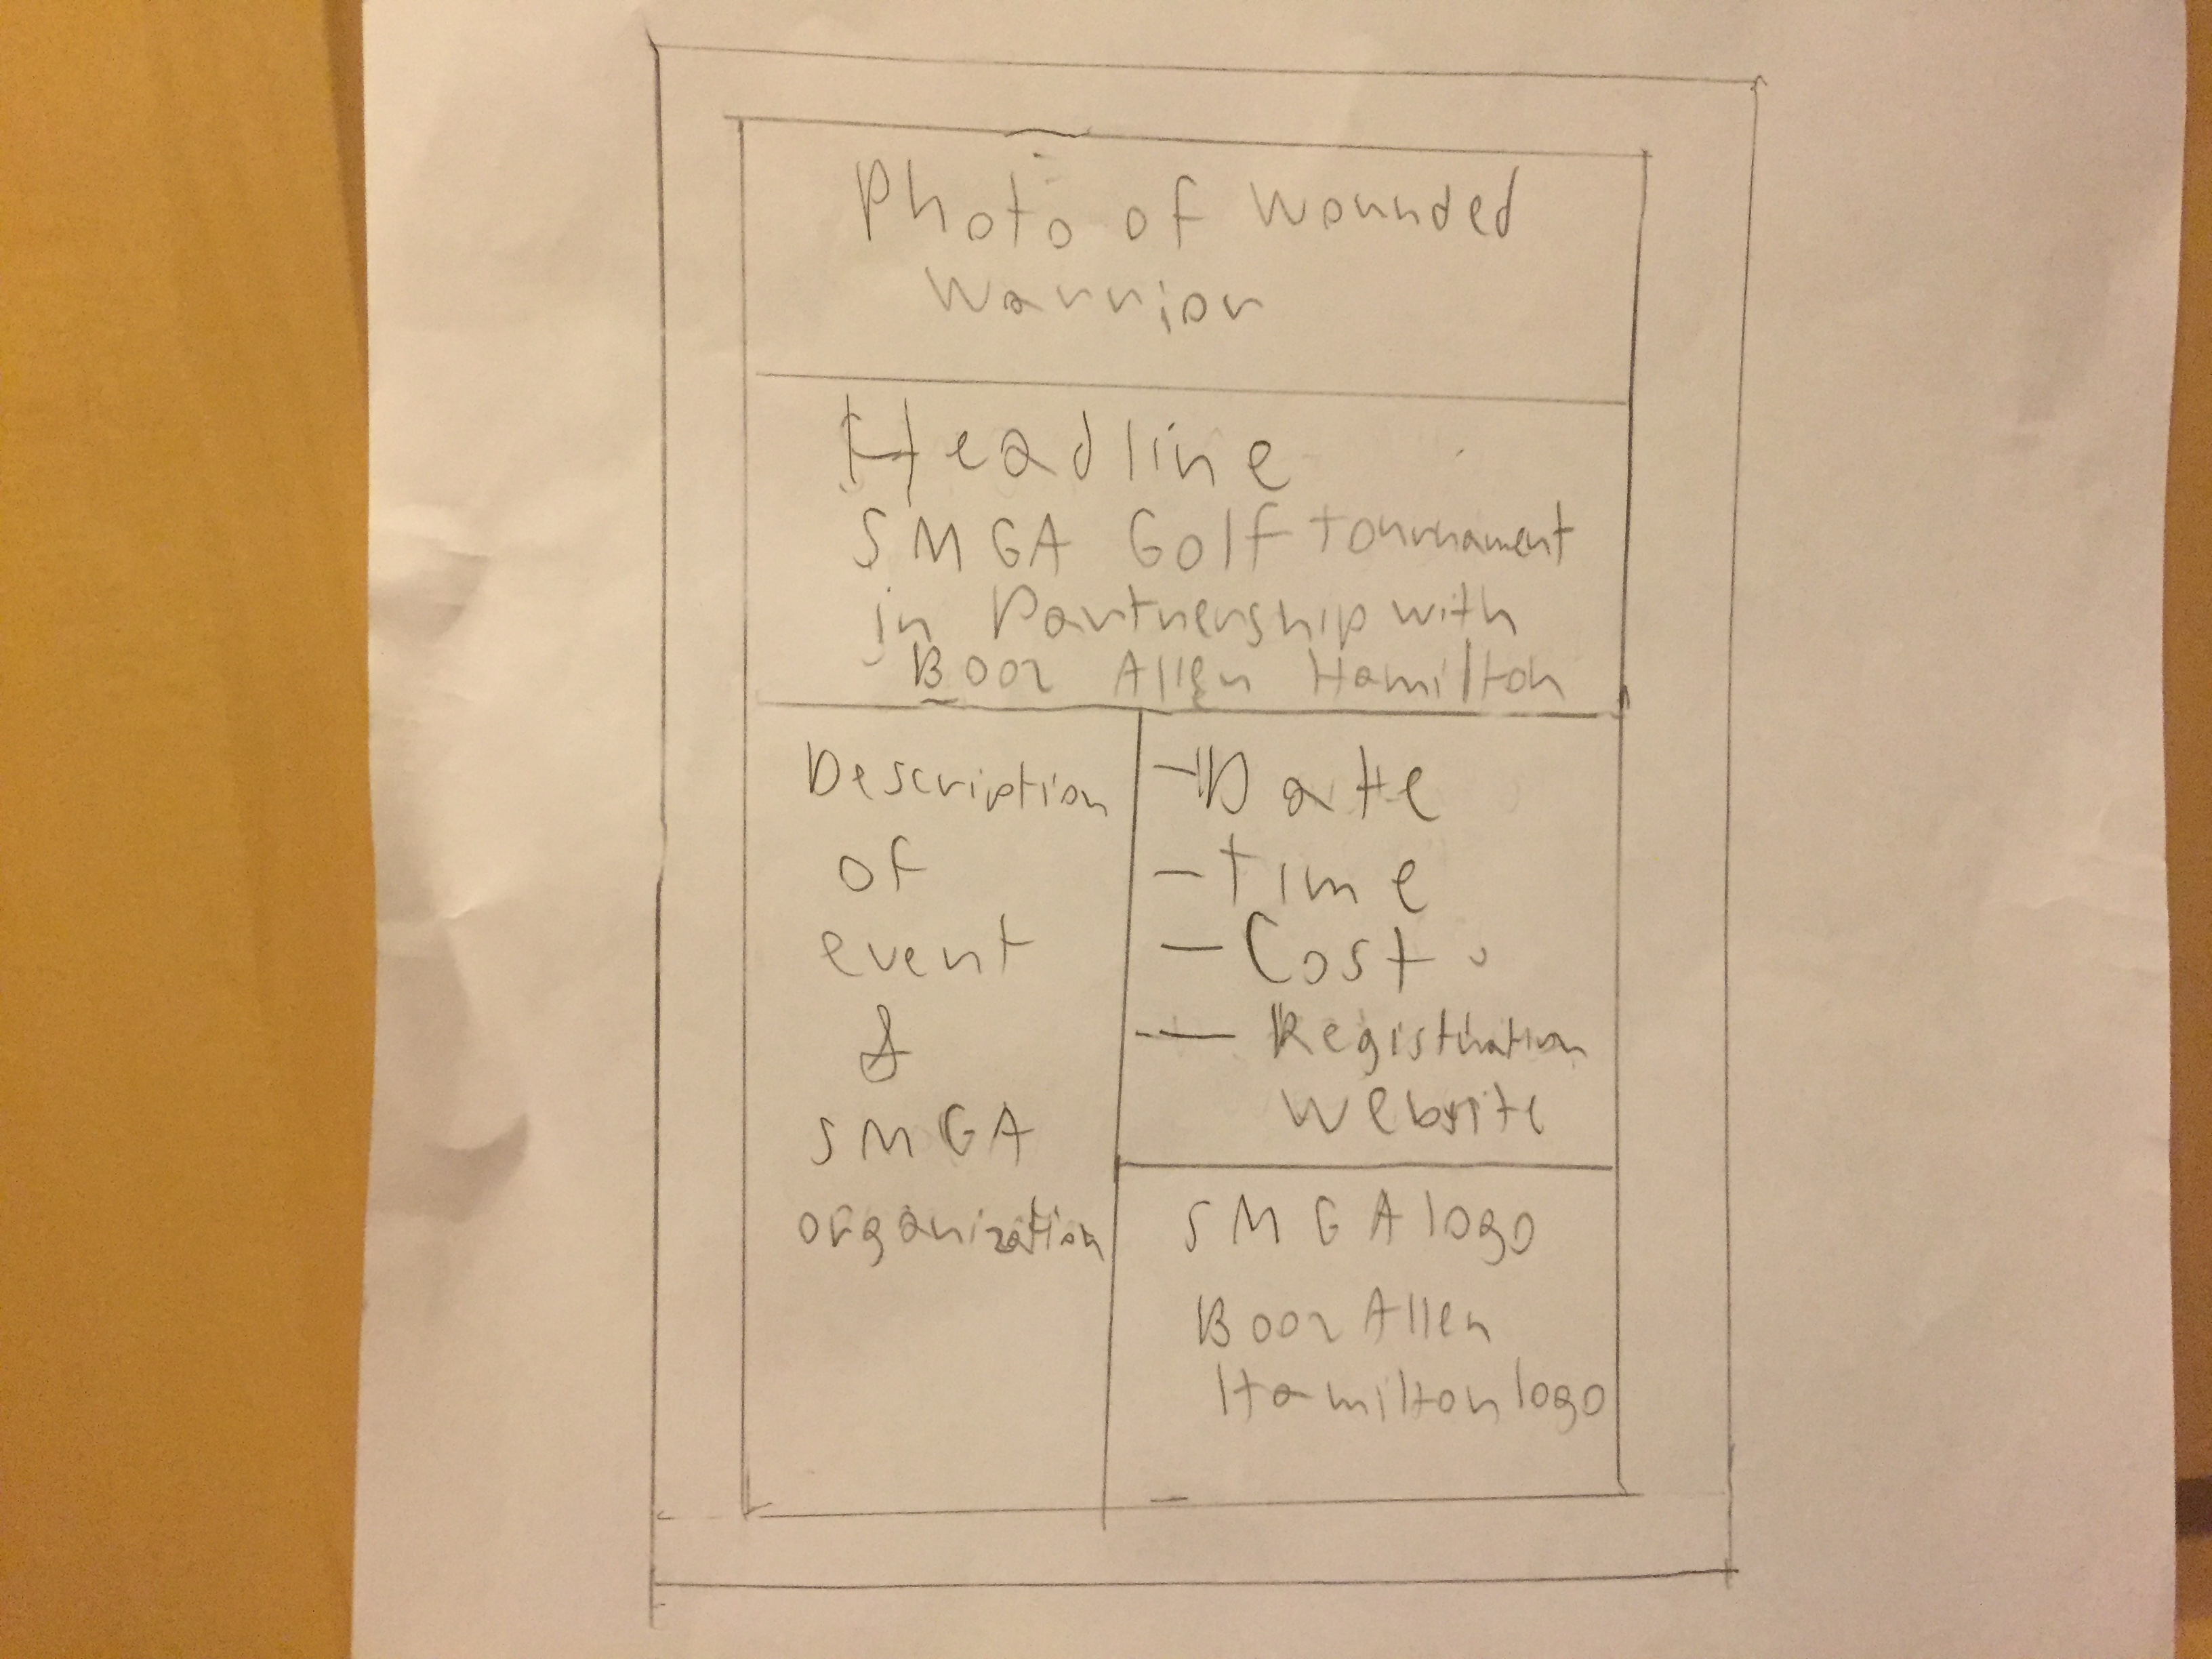 Photo of Wounded
Warrior
Headline
SMGA Golf tournament
in Partnership with
Booz Allen Hamilton
Description
of
event
&
SMGA
organization
- Date
- Time
- Cost
- Registration
Website
SMGA logo
Booz Allen
Hamilton logo